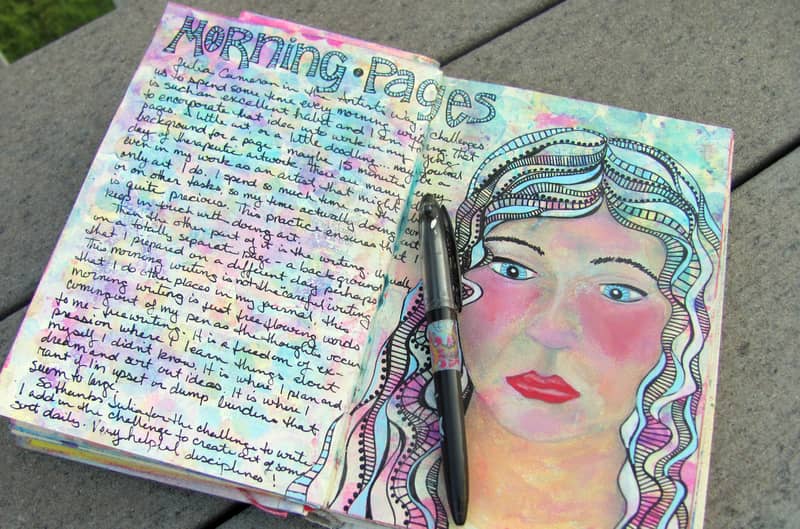 Morning Pages
Julia Cameron in The Artist's Way challenges
us to spend some time every morning writing that
is such an excellent habit and I try
to incorporate that idea into work in my journal
pages. A little art, a little doodling, maybe a
background for a page, maybe 15 minutes
day of therapeutic artwork. There are many
even in my work as an artist that might
only art I do. I spend so much time
in on other tasks, so my time actually doing
is quite precious. This practice ensures that I
keep in touch with doing art.
in then the part of it is the writing, usually
on a totally separate page, a background
that I prepared on a different day perhaps
This morning writing is not the careful writing
that I do other places in my journal, this
morning writing is just free flowing words
coming out of my pen as the thoughts occur
to me, freewriting. It is a freedom of ex-
pression where I learn things about
myself I didn't know. It is where I plan and
dream and sort out ideas. It is where I
rant if I'm upset or dump burdens that
seem to large.
So thanks Julia for the challenge to write
I add in the challenge to create art of some
sort daily. Very helpful disciplines!